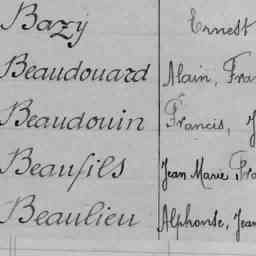 Bazy Ernest
Beaudouard Alain, Fra
Beaudouin Francis, J
Beaufils Jean Marie Fra
Beaulieu Alphonse, Jean